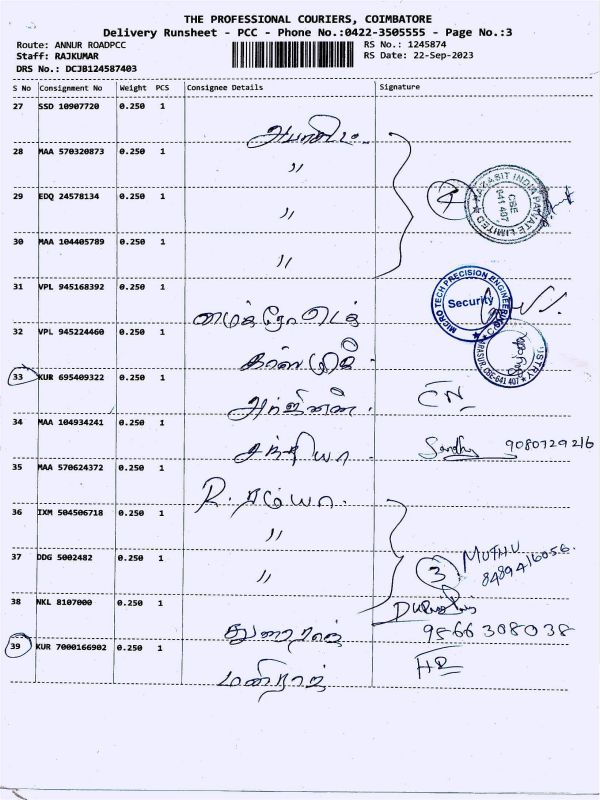 THE PROFESSIONAL COURIERS, COIMBATORE
Delivery Runsheet - PCC - Phone No.:0422-3505555 - Page No.:3
Route: ANNUR ROADPCC RS No.: 1245874
Staff: RAJKUMAR RS Date: 22-Sep-2023
DRS No.: DCJB124587403
S No Consignment No Weight PCS Consignee Details Signature
27 SSD 10907720 0.250 1
28 MAA 570320873 0.250 1 〃
29 EDQ 24578134 0.250 1 〃 4
30 MAA 104405789 0.250 1 〃
31 VPL 945168392 0.250 1 MICRO TECH PRECISION ENGINEERING Security
32 VPL 945224460 0.250 1
33 KUR 695409322 0.250 1
34 MAA 104934241 0.250 1 சந்தியா Sandhy 9080729216
35 MAA 570624372 0.250 1 R. ரம்யா
36 IXM 504506718 0.250 1 〃
37 DDG 5002482 0.250 1 〃 3 MUTHU 8489416056
38 NKL 8107000 0.250 1 துரைராஜ் 9866308038
39 KUR 7000166902 0.250 1 மணிராஜ்